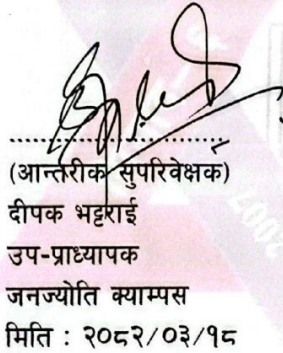 (आन्तरीक सुपरिवेक्षक)
दीपक भट्टराई
उप-प्राध्यापक
जनज्योति क्याम्पस
मिति : २०८२/०३/१८